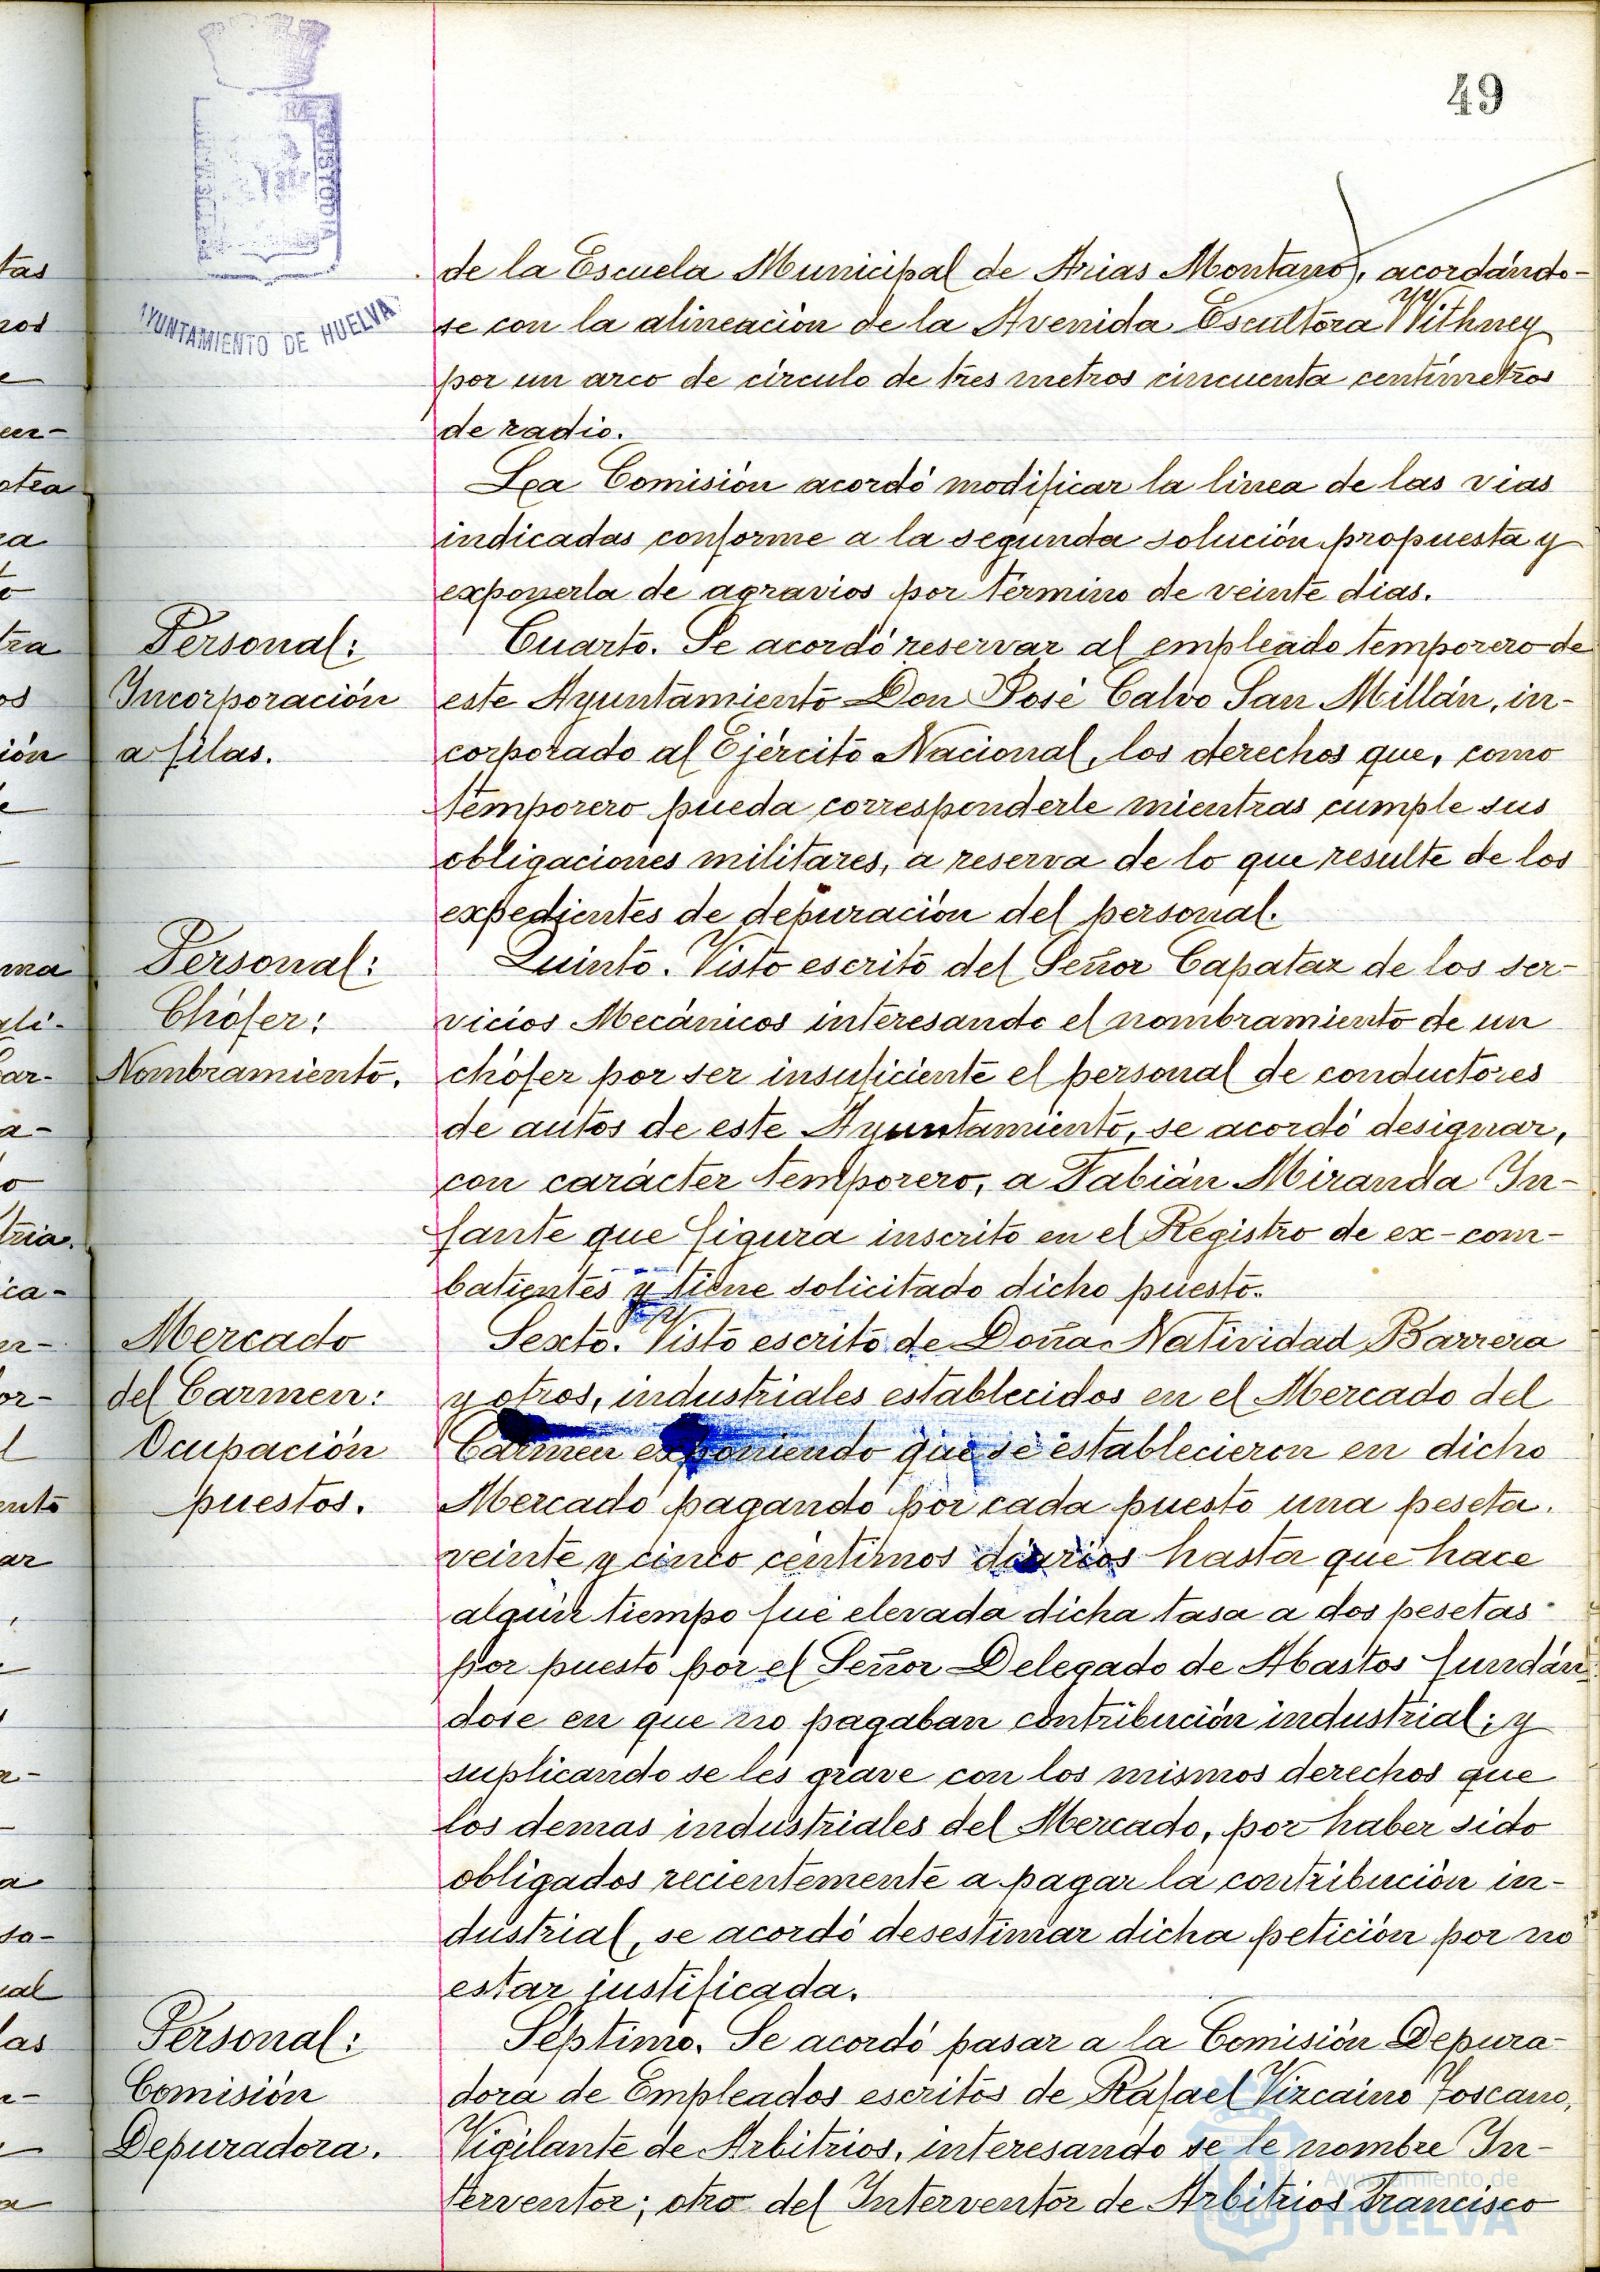 49
AYUNTAMIENTO DE HUELVA
de la Escuela Municipal de Arias Montano, acordándo-
se con la alineación de la Avenida Escultora Withney
por un arco de círculo de tres metros cincuenta centímetros
de radio.
La Comisión acordó modificar la linea de las vias
indicadas conforme a la segunda solución propuesta y
exponerla de agravios por término de veinte dias.
Personal:
Incorporación
a filas.
Cuarto. Se acordó reservar al empleado temporero de
este Ayuntamiento Don José Calvo San Millán, in-
corporado al Ejército Nacional, los derechos que, como
temporero pueda corresponderle mientras cumple sus
obligaciones militares, a reserva de lo que resulte de los
expedientes de depuración del personal.
Personal:
Chófer:
Nombramiento.
Quinto. Visto escrito del Señor Capataz de los ser-
vicios Mecánicos interesando el nombramiento de un
chófer por ser insuficiente el personal de conductores
de autos de este Ayuntamiento, se acordó designar,
con carácter temporero, a Fabián Miranda In-
fante que figura inscrito en el Registro de ex-com-
batientes y tiene solicitado dicho puesto.
Mercado
del Carmen:
Ocupación
puestos.
Sexto. Visto escrito de Doña Natividad Barrera
y otros, industriales establecidos en el Mercado del
Carmen exponiendo que se establecieron en dicho
Mercado pagando por cada puesto una peseta.
veinte y cinco céntimos diarios hasta que hace
algún tiempo fué elevada dicha tasa a dos pesetas
por puesto por el Señor Delegado de Abastos fundán-
dose en que no pagaban contribución industrial; y
suplicando se les grave con los mismos derechos que
los demas industriales del Mercado, por haber sido
obligados recientemente a pagar la contribución in-
dustrial, se acordó desestimar dicha petición por no
estar justificada.
Personal:
Comisión
Depuradora.
Séptimo. Se acordó pasar a la Comisión Depura-
dora de Empleados escritos de Rafael Vizcaino Toscano,
Vigilante de Arbitrios, interesando se le nombre In-
terventor; otro del Interventor de Arbitrios Francisco
Ayuntamiento de
HUELVA